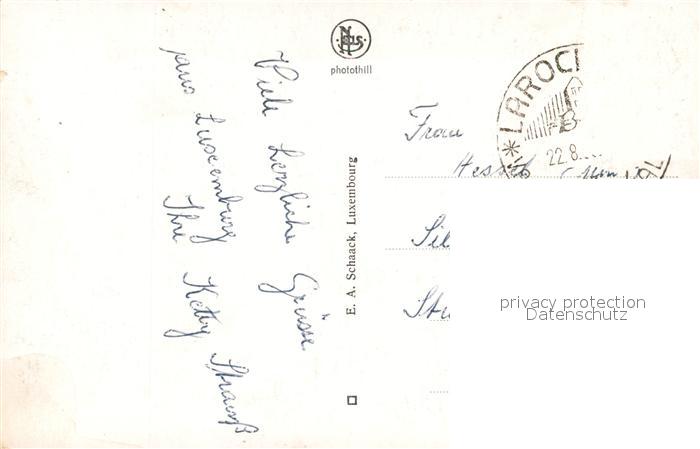 Viele herzliche Grüsse
aus Luxemburg
Ihre Ketty Strauß.
NELS
photothill
E. A. Schaack, Luxembourg
* LAROC
22.8.
Frau
Sie
privacy protection
Datenschutz